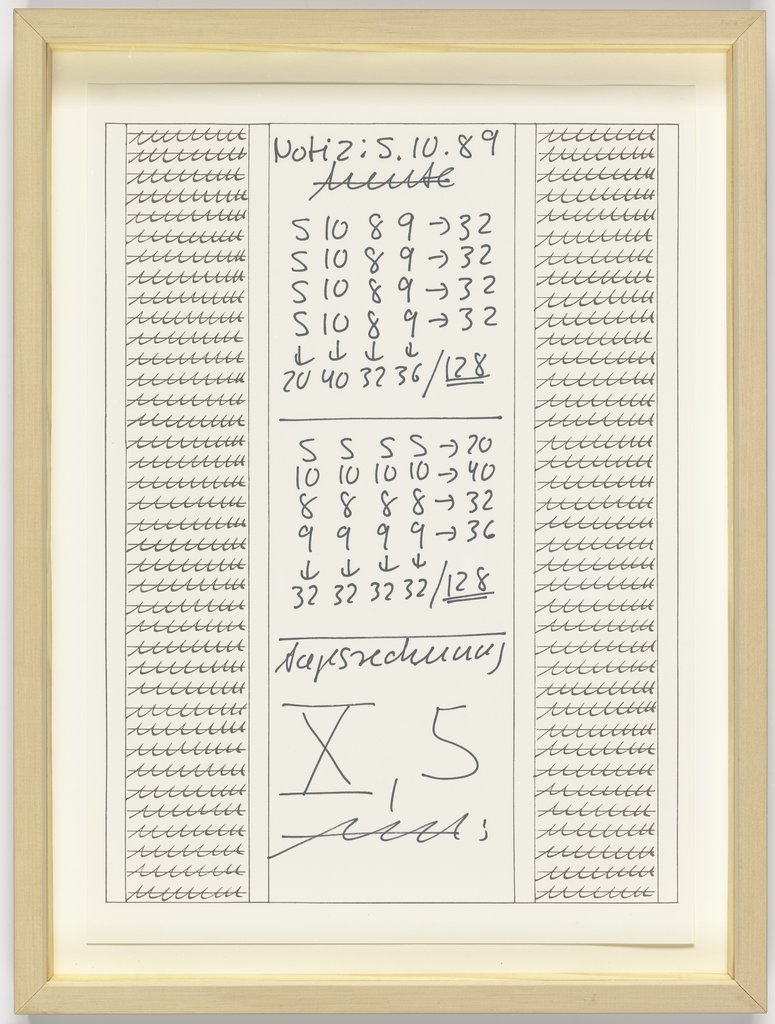 Notiz: 5.10.89
heute
5 10 8 9 → 32
5 10 8 9 → 32
5 10 8 9 → 32
5 10 8 9 → 32
↓ ↓ ↓ ↓
20 40 32 36 / 128
5 5 5 5 → 20
10 10 10 10 → 40
8 8 8 8 → 32
9 9 9 9 → 36
↓ ↓ ↓ ↓
32 32 32 32 / 128
Tagesrechnung
X, 5